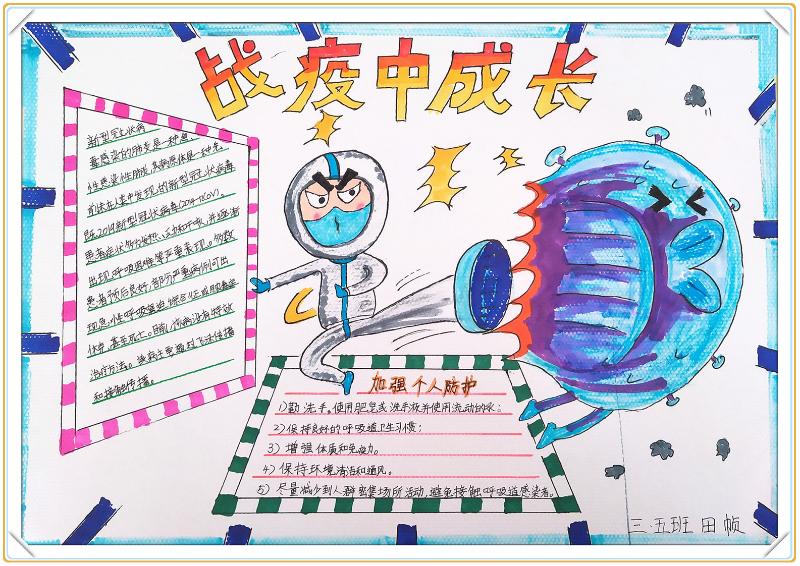 战疫中成长
新型冠状病
毒感染的肺炎是一种急
性感染性肺炎,其病原体是一种先
前未在人类中发现的新型冠状病毒
即2019新型冠状病毒(2019-nCoV)。
患者症状多为发热、乏力和干咳,并逐渐
出现呼吸困难等严重表现。多数
患者预后良好,部分严重病例可出
现急性呼吸窘迫综合征或脓毒症
休克,甚至死亡。目前,尚没有特效
治疗方法。该病主要通过飞沫传播
和接触传播。
加强个人防护
1)勤洗手。使用肥皂或洗手液并使用流动的水;
2)保持良好的呼吸道卫生习惯;
3)增强体质和免疫力。
4)保持环境清洁和通风。
5)尽量减少到人群密集场所活动,避免接触呼吸道感染者。
三.五班 田帧